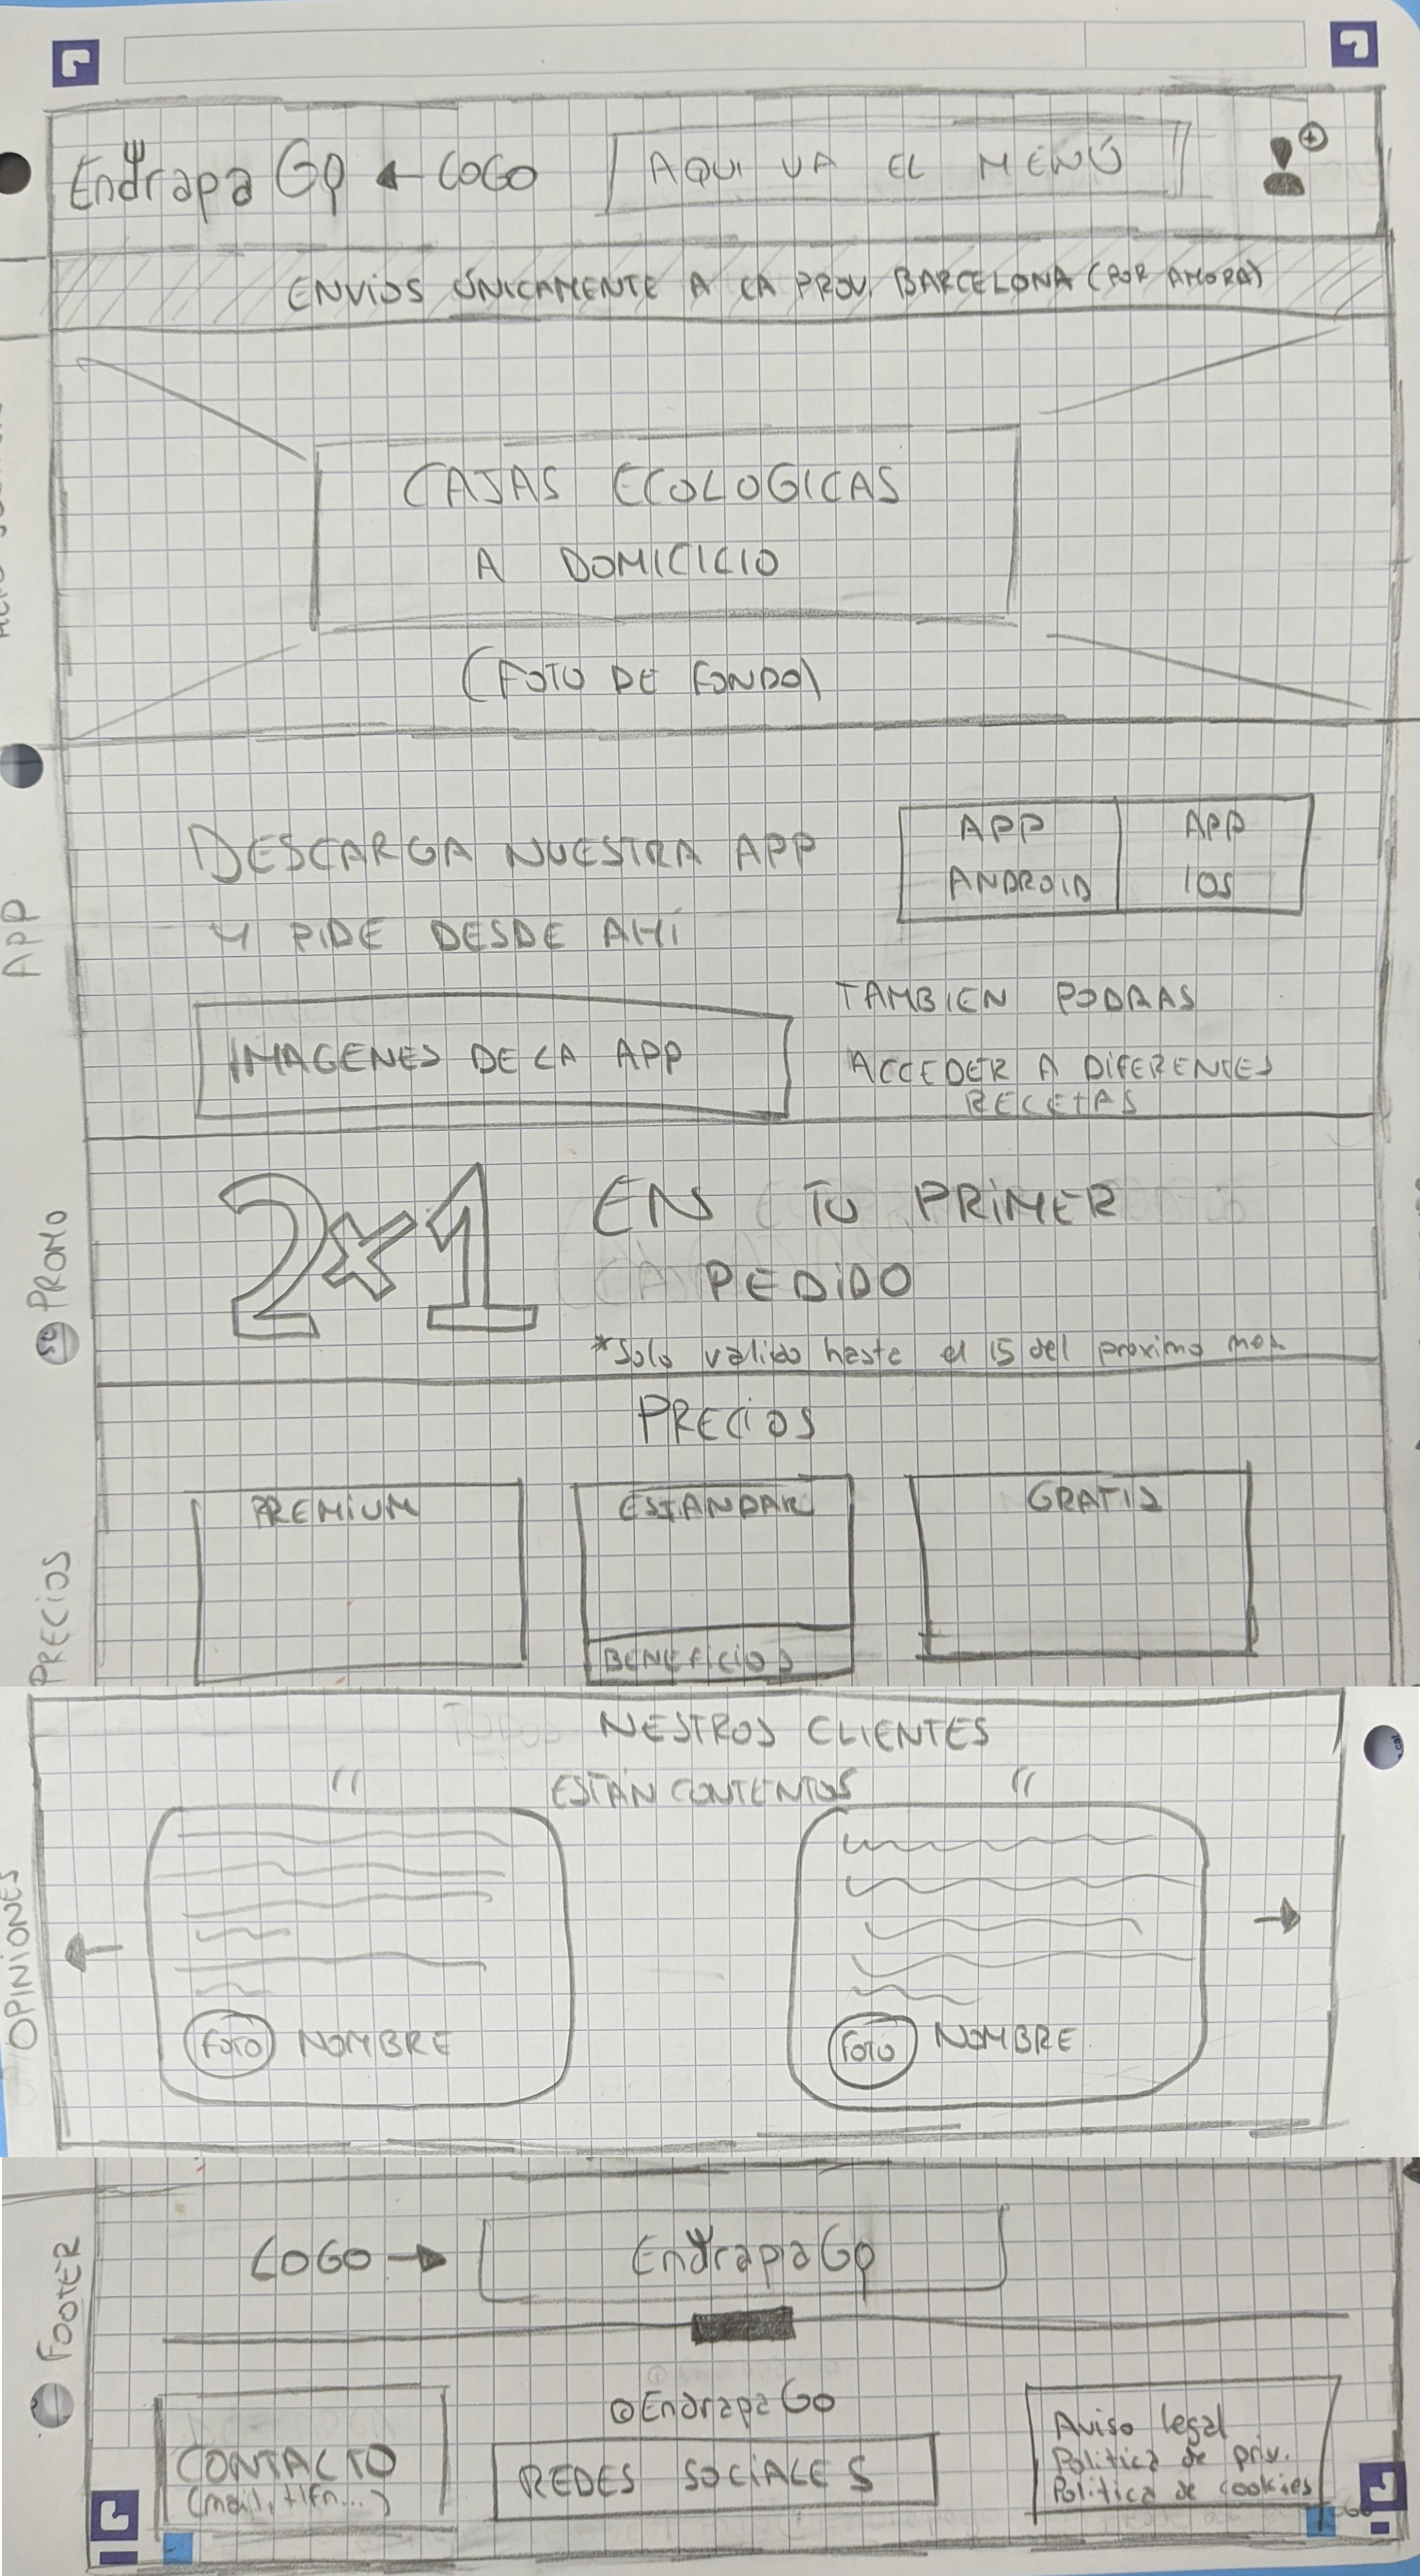 EndrapaGo ← LOGO
AQUI VA EL MENÚ
ENVÍOS ÚNICAMENTE A LA PROV. BARCELONA (POR AHORA)
CAJAS ECOLOGICAS
A DOMICILIO
(FOTO DE FONDO)
APP
DESCARGA NUESTRA APP
Y PIDE DESDE AHÍ
APP
ANDROID
APP
IOS
IMAGENES DE LA APP
TAMBIEN PODRAS
ACCEDER A DIFERENTES
RECETAS
PROMO
2x1
EN TU PRIMER
PEDIDO
*Solo valido hasta el 15 del proximo mes
PRECIOS
PRECIOS
PREMIUM
ESTANDAR
BENEFICIOS
GRATIS
OPINIONES
NESTROS CLIENTES
ESTÁN CONTENTOS
FOTO NOMBRE
FOTO NOMBRE
FOOTER
LOGO → EndrapaGo
@EndrapaGo
CONTACTO
(mail, tlfn...)
REDES SOCIALES
Aviso legal
Politica de priv.
Politica de cookies